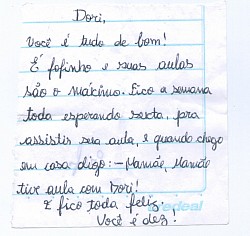 Dori,
Você é tudo de bom!
É fofinho e suas aulas
são o máximo. Fico a semana
toda esperando sexta, pra
assistir sua aula, e quando chego
em casa digo: - Mamãe, Mamãe
tive aula com Dori!
E fico toda feliz.
Você é dez!
credeal